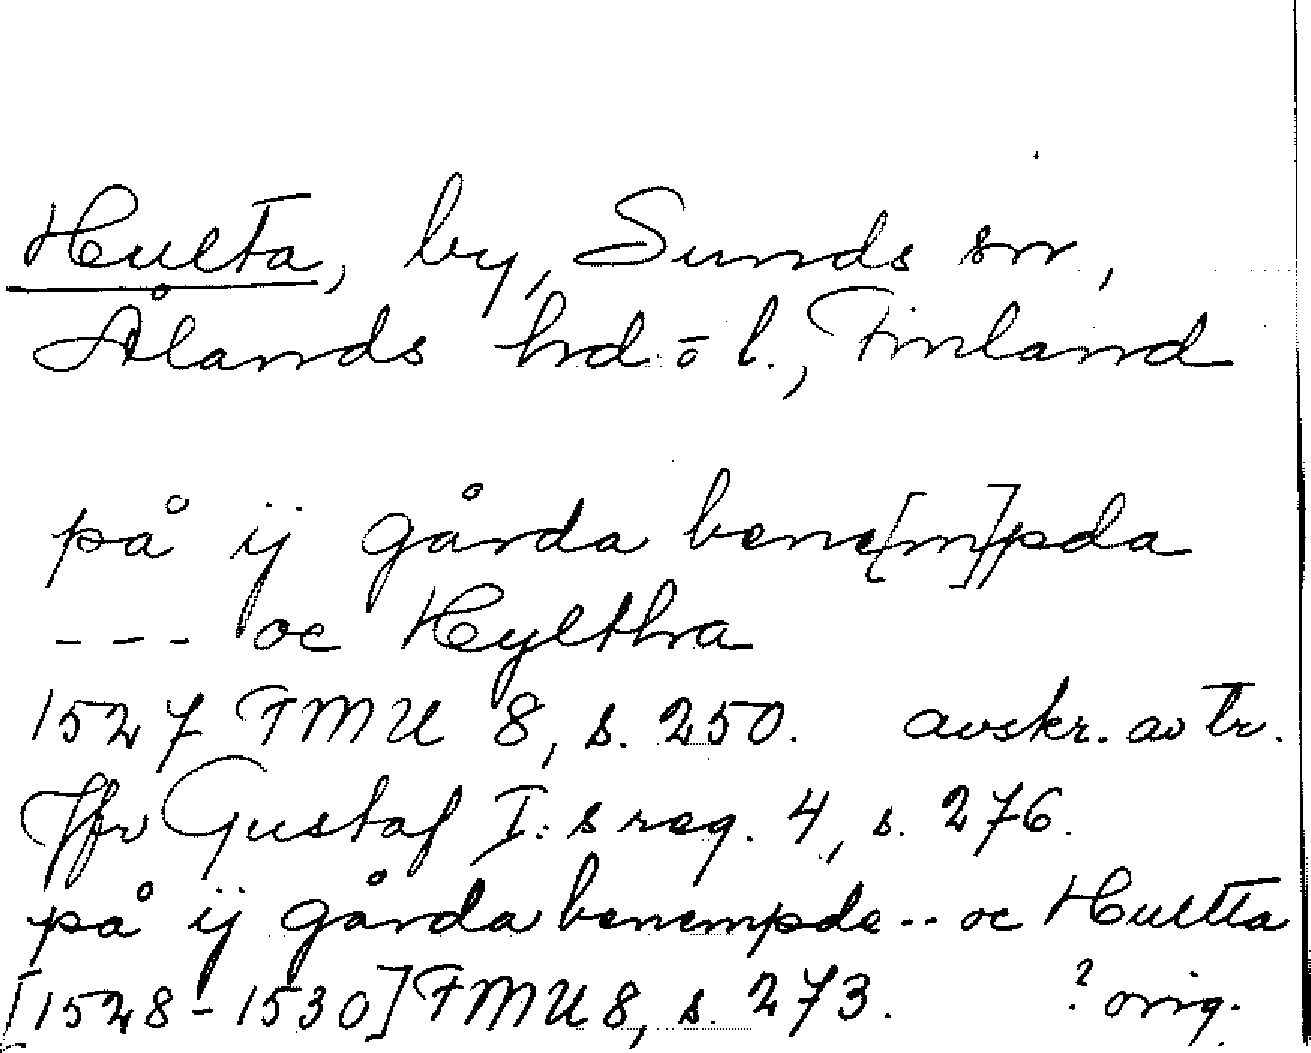 Hulta, by, Sunds sn,
Ålands hrd o l., Finland
på ij gårda bene[m]pda
--- oc Hyltha
1527 FMU 8, s. 250. avskr. av tr.
Jfr Gustaf I:s reg. 4, s. 276.
på ij gårda benempde -- oc Hultta
[1528-1530] FMU 8, s. 273. ? orig.